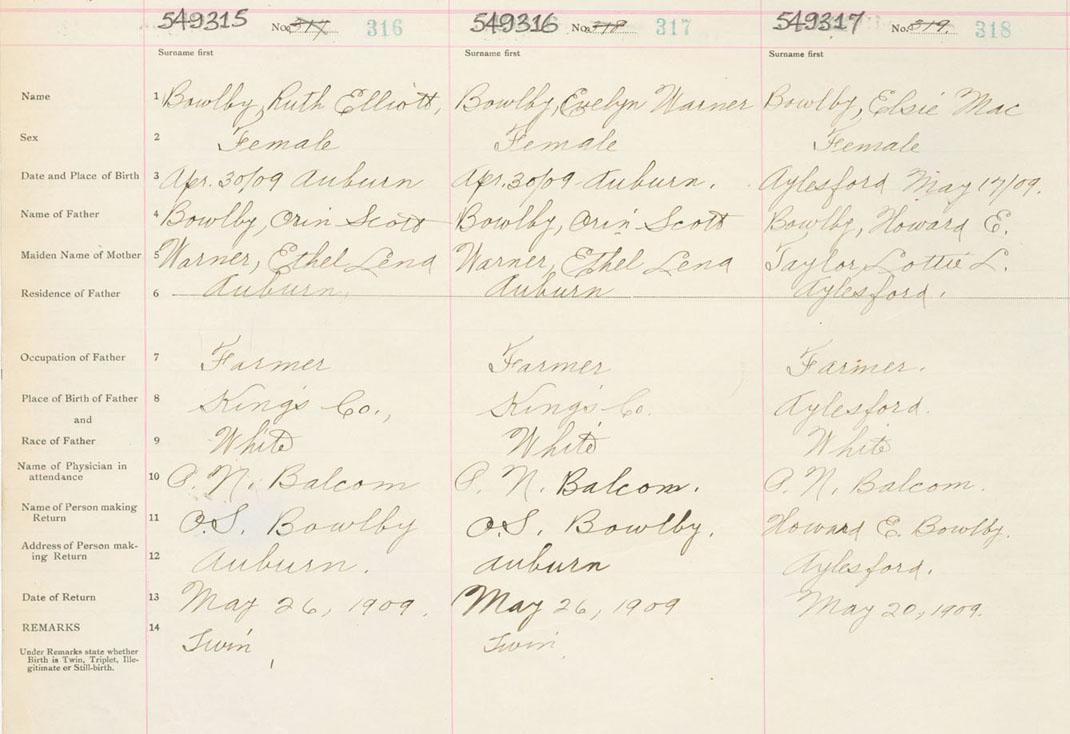 549315 No. 317 316 549316 No. 318 317 549317 No. 319. 318
Surname first Surname first Surname first
Name 1 Bowlby, Ruth Elliott, Bowlby, Evelyn Warner Bowlby, Elsie Mae
Sex 2 Female Female Female
Date and Place of Birth 3 Apr. 30/09 Auburn Apr. 30/09 Auburn. Aylesford May 17/09.
Name of Father 4 Bowlby, Orin Scott Bowlby, Orin Scott Bowlby, Howard E.
Maiden Name of Mother 5 Warner, Ethel Lena Warner, Ethel Lena Taylor, Lottie L.
Residence of Father 6 Auburn, Auburn Aylesford.
Occupation of Father 7 Farmer Farmer Farmer.
Place of Birth of Father 8 King's Co., King's Co. Aylesford.
and
Race of Father 9 White White White
Name of Physician in
attendance 10 P. N. Balcom P. N. Balcom. P. N. Balcom.
Name of Person making
Return 11 O.S. Bowlby O.S. Bowlby. Howard E. Bowlby.
Address of Person mak-
ing Return 12 Auburn. Auburn Aylesford.
Date of Return 13 May 26, 1909. May 26, 1909 May 20, 1909.
REMARKS 14 Twin Twin
Under Remarks state whether
Birth is Twin, Triplet, Ille-
gitimate or Still-birth.